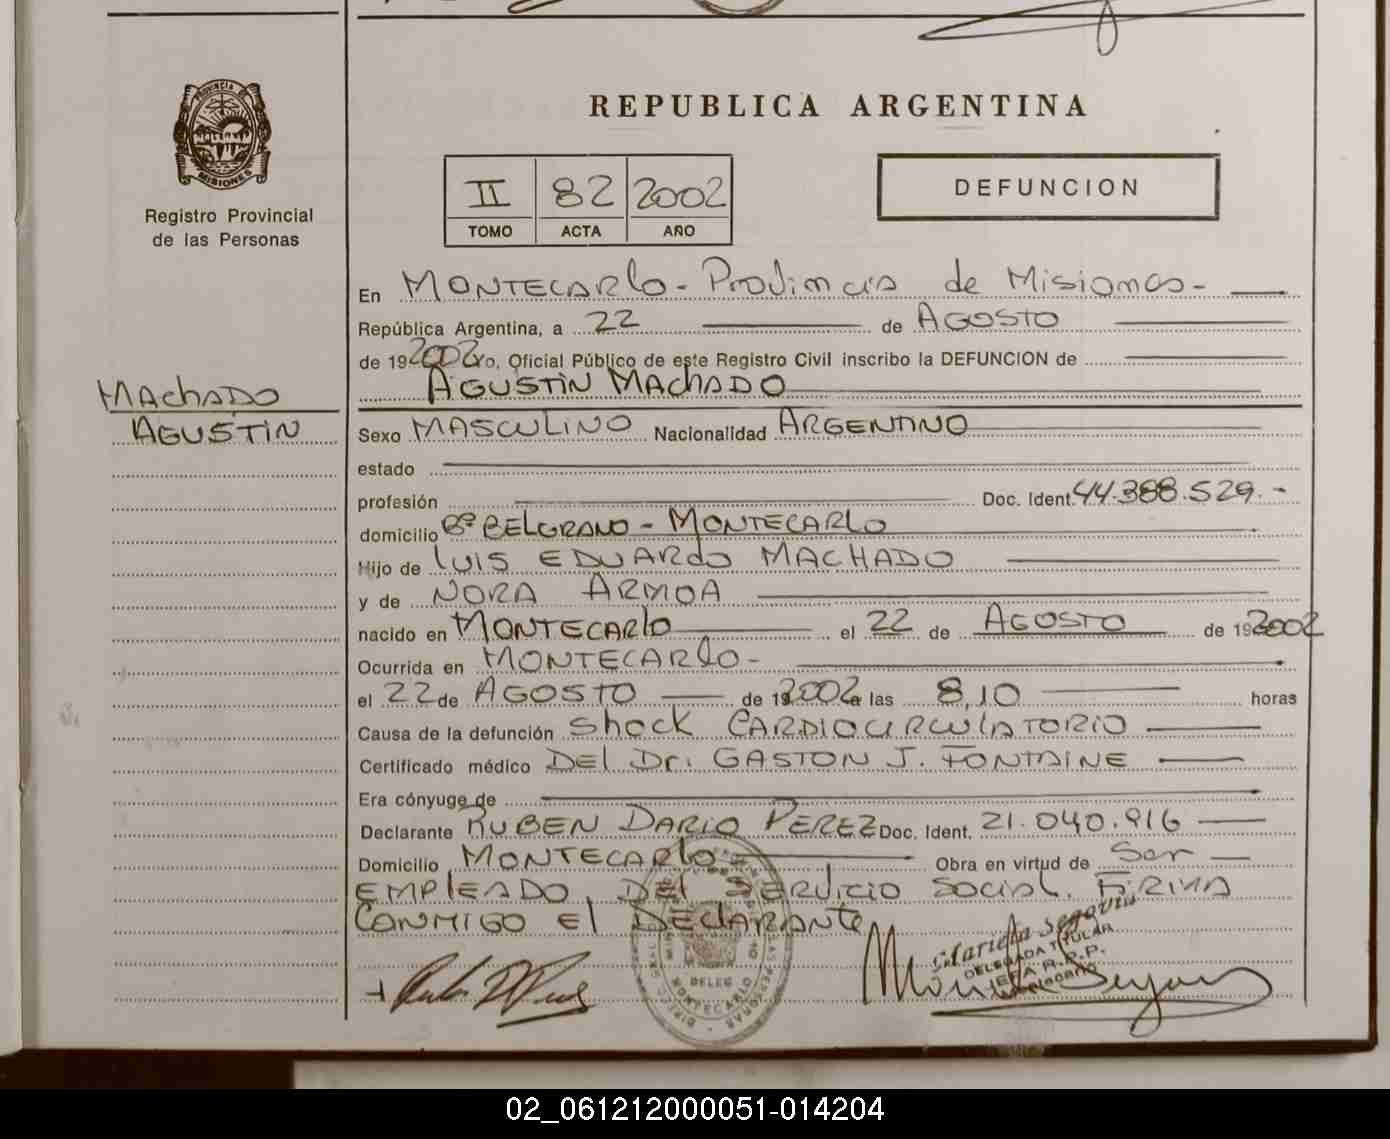 REPUBLICA ARGENTINA
PROVINCIA DE
MISIONES
Registro Provincial
de las Personas
II 82 2002
TOMO ACTA AÑO
DEFUNCION
En MONTECARlo - Provincia de Misiones -
República Argentina, a 22 de AGOSTO
de 192002 Yo, Oficial Público de este Registro Civil inscribo la DEFUNCION de
AGUSTIN MACHADO
MACHADO
AGUSTIN
Sexo MASCULINO Nacionalidad ARGENTINO
estado
profesión Doc. Ident. 44.388.529.-
domicilio Bº BELGRANO - MONTECARLO
Hijo de LUIS EDUARDO MACHADO
y de NORA ARMOA
nacido en MONTECARLO el 22 de AGOSTO de 192002
Ocurrida en MONTECARLO -
el 22 de AGOSTO de 192002 a las 8,10 horas
Causa de la defunción Shock CARDIOCIRCULATORIO
Certificado médico DEL Dr. GASTON J. FONTAINE
Era cónyuge de
Declarante RUBEN DARIO PEREZ Doc. Ident. 21.040.916
Domicilio MONTECARLO Obra en virtud de Ser
EMPLEADO DEL SERVICIO SOCIAL. FIRMA
CONMIGO El DECLARANTE
Mariela Segovia
DELEGADA TITULAR
JEFA R.P.P.
DELEG
MONTECARLO
02_061212000051-014204